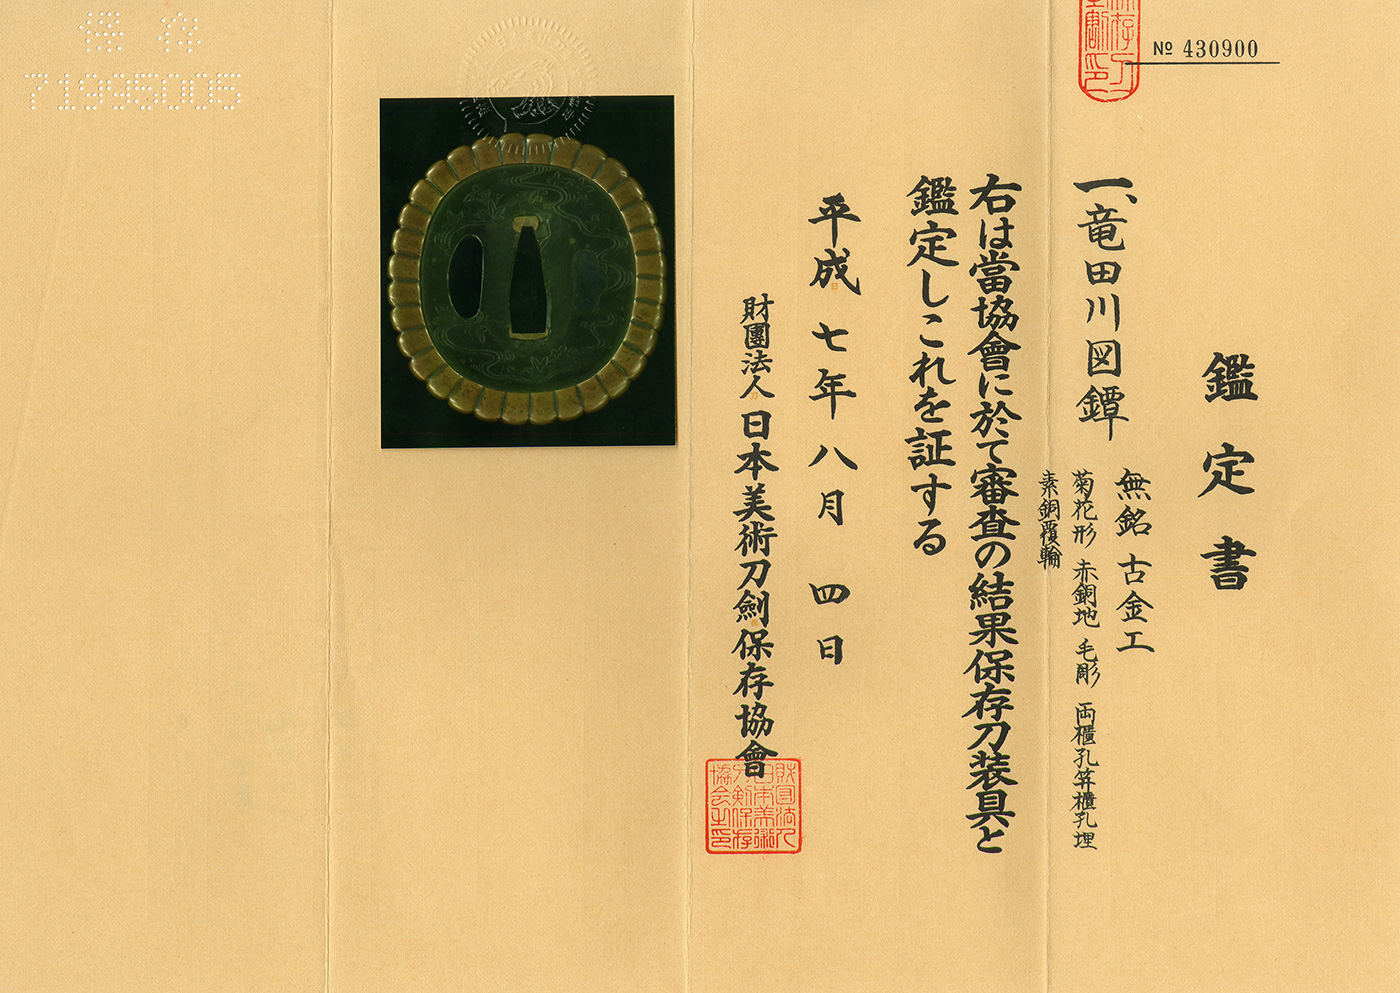 № 430900
鑑定書
一、竜田川図鐔
無銘 古金工
菊花形 赤銅地 毛彫 両櫃孔笄櫃孔埋
素銅覆輪
右は當協會に於て審査の結果保存刀装具と
鑑定しこれを証する
平成七年八月四日
財團法人日本美術刀劍保存協會
財団法人
日本美術
刀剣保存
協会之印
保存
71995005